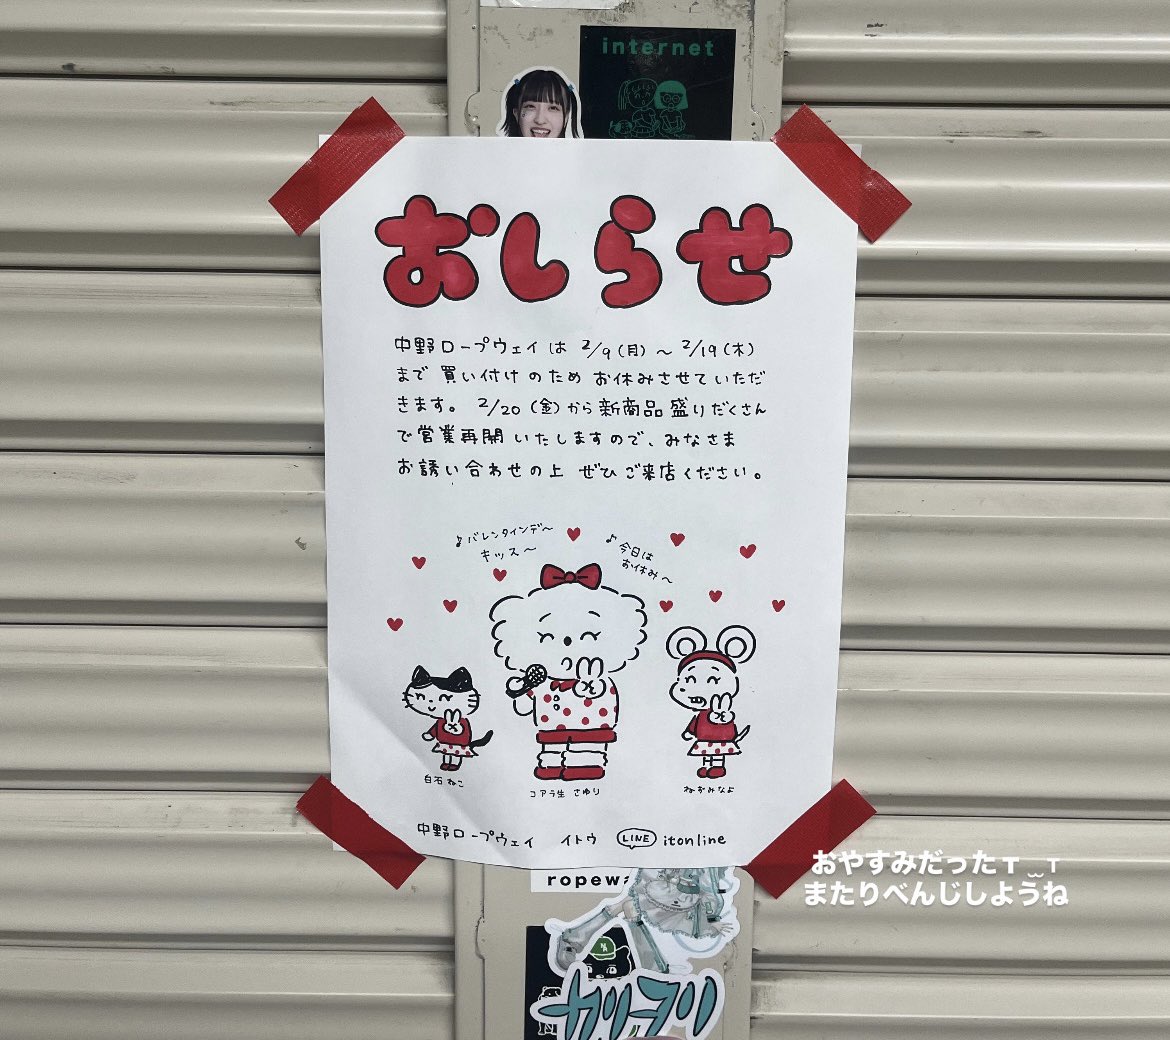 internet
おしらせ
中野ロープウェイは 2/9(月)〜2/19(木)
まで 買い付け のため お休みさせていただ
きます。 2/20(金)から新商品盛りだくさん
で営業再開いたしますので、みなさま
お誘い合わせの上 ぜひご来店ください。
♪バレンタインデ〜
キッス〜
♪今日は
お休み〜
白石ねこ
コアラ生 さゆり
ねずみなよ
中野ロープウェイ イトウ LINE itonline
おやすみだったT ͜ T
またりべんじしようね